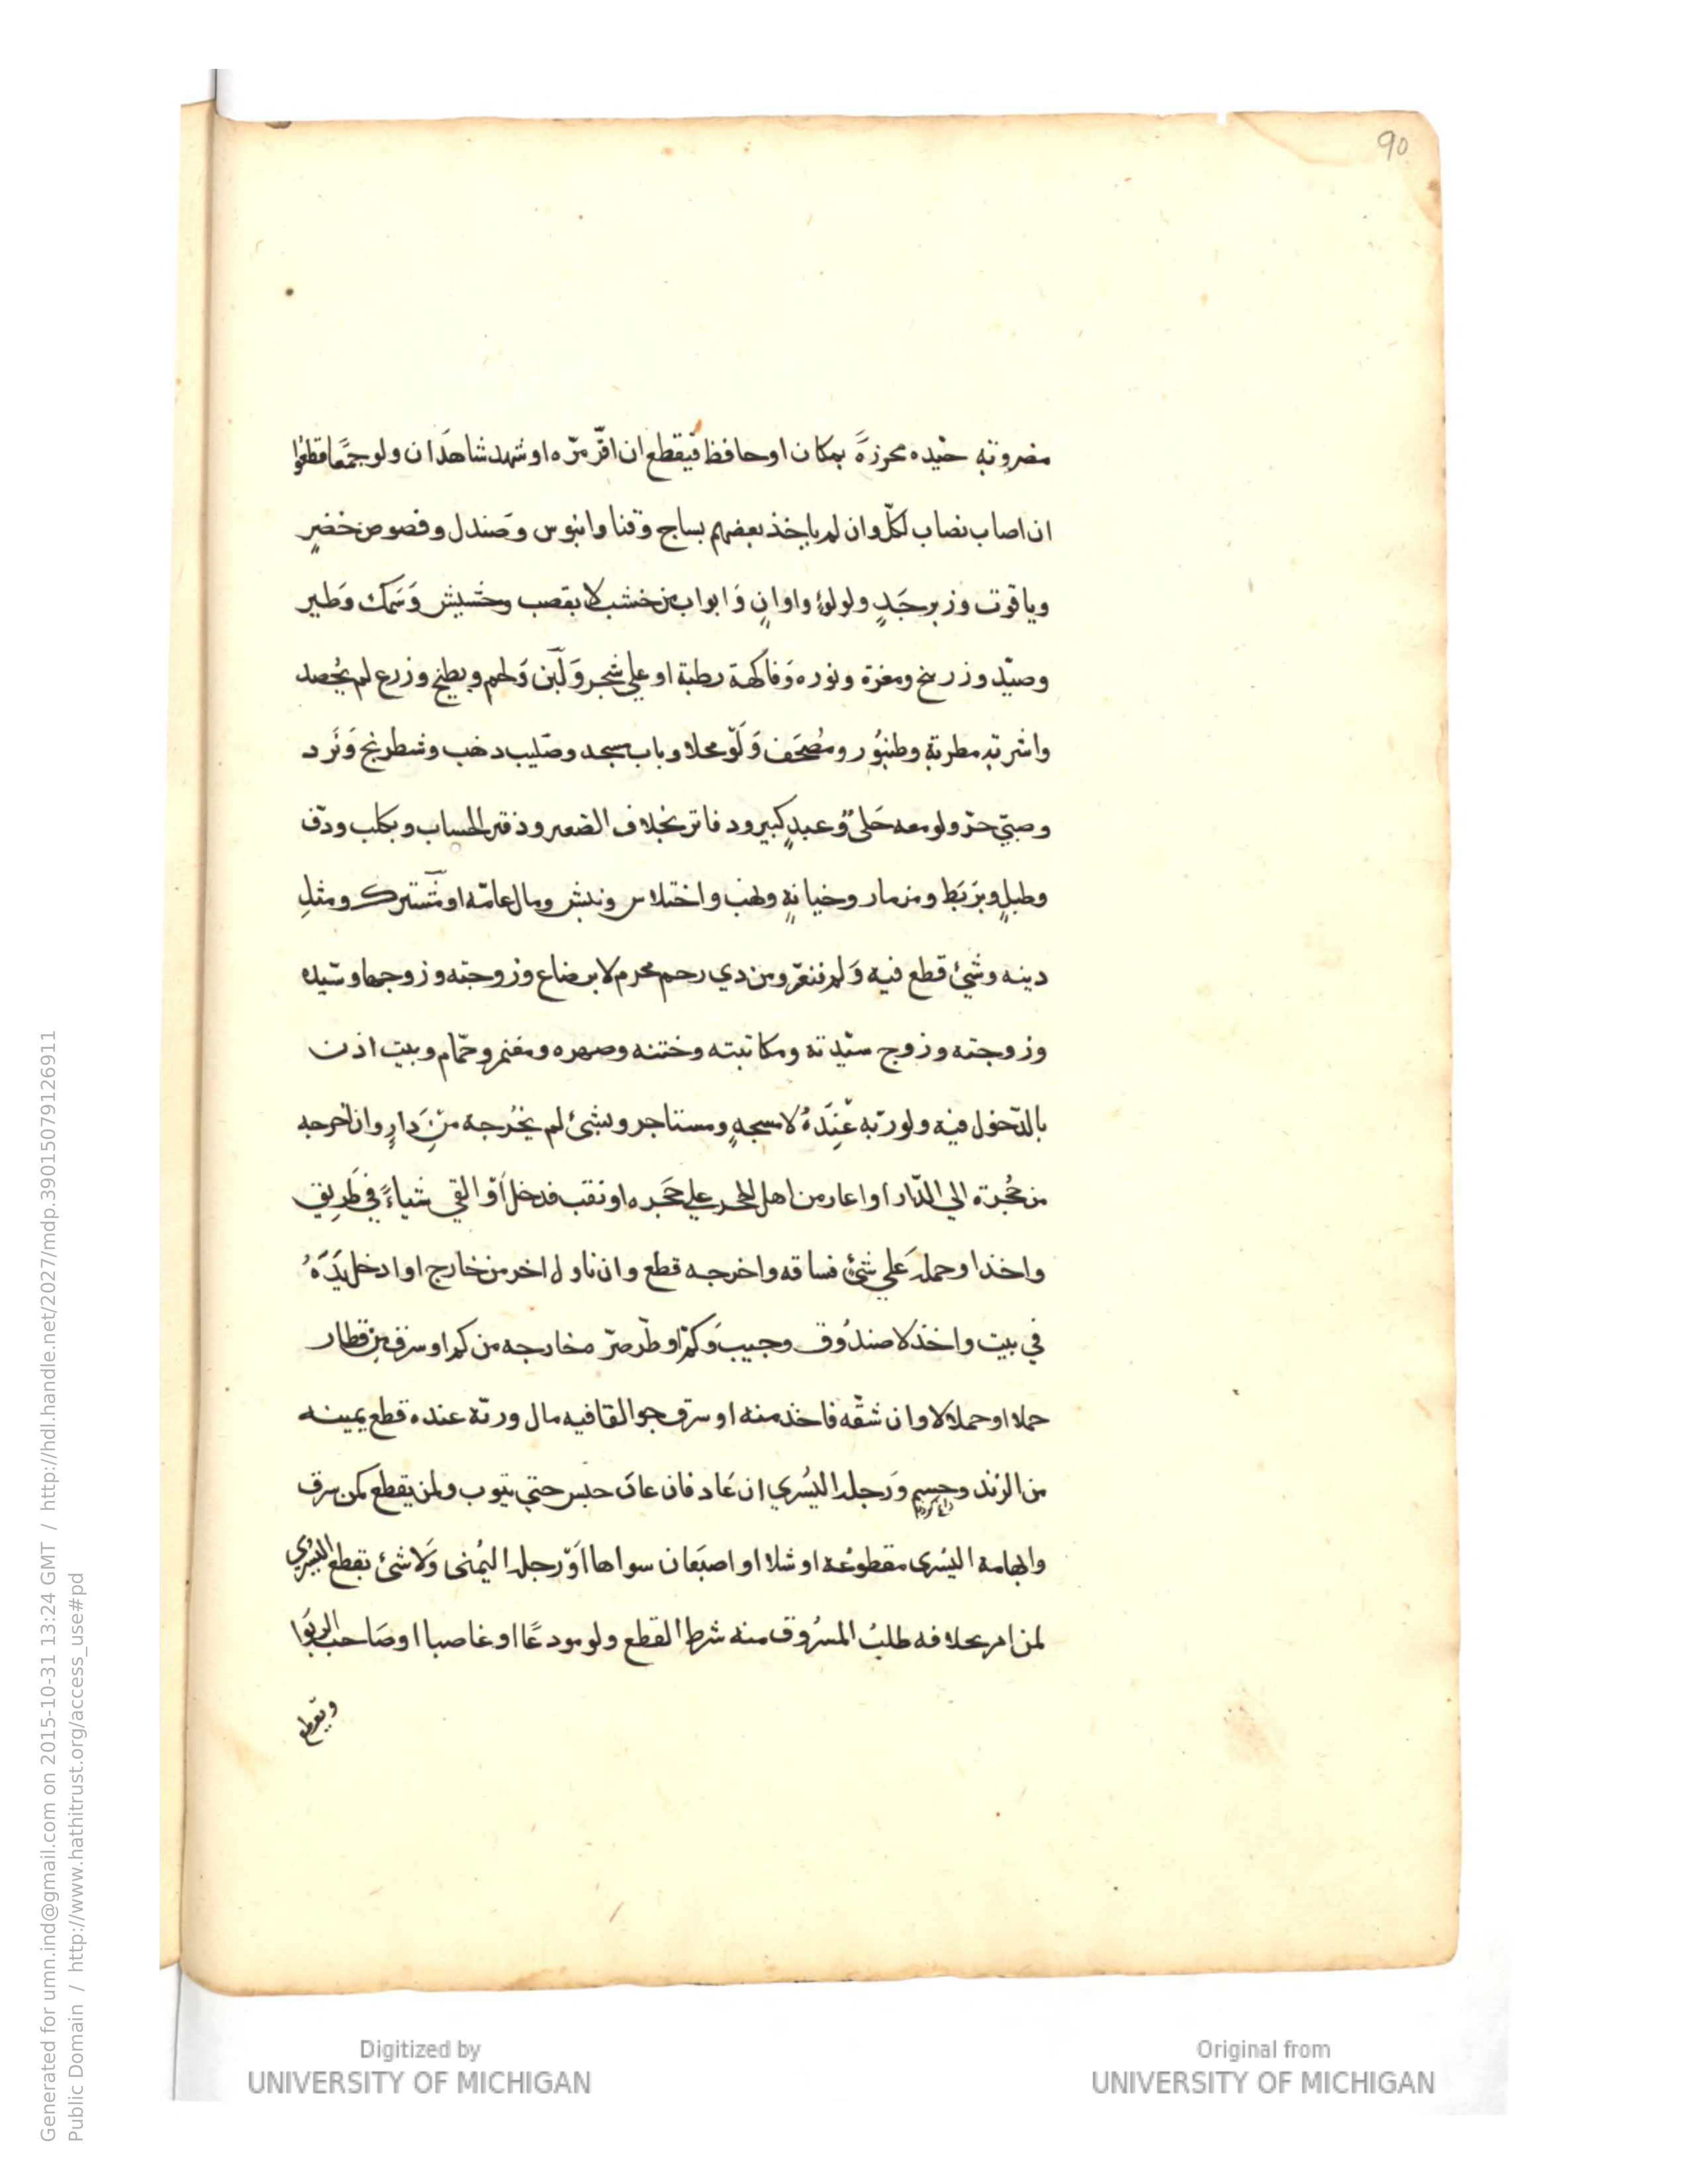 90
مضروبة جيده محرزةً بمكان او حافظ فيقطع ان اقرّ مرّه او شهد شاهدان ولو جمعًا قطعوا
ان اصاب نصاب لكلّ وان لم ياخذ بعضهم بساج وقنا وابنوس وصندل وفصوص خضرٍ
وياقوت وزبرجَدٍ ولولوء واوانٍ وَابواب من خشب لا بقصب وحشيش وَسَمك وَطير
وصيّد وزرنيخ ومغرة ونوره وَفاكهة رطبة او علي شجر وَلَبَن وَلحم وبطيخ وزرع لم يُحصد
واشربة مطربة وطنبُور ومُصحَف وَلَوْ محلا وباب مسجد وصَليب ذهب وشطرنج وَنَرد
وصبيّ حرّ ولو معه حَلي وعبدٍ كبير ودفاتر بخلاف الصغير ودفتر الحساب وبكلب ودّف
وطبلٍ وبَربَط ومزمار وخيانةٍ ونهب واختلاس ونبش ومال عامّه او مُشترك ومثلِ
دينه وشيْء قطع فيه وَلم يتغيّر ومن ذي رحم محرم لا برضاع وزوجته وزوجها وسيّده
وزوجته وزوج سيّدته ومكاتبته وختنه وصهره ومغنم وحمّام وبيت اذن
بالدّخول فيه ولو ربّه عِندَهُ لا مسجدٍ ومستاجر وبشيْ لم يخرُجه مِنَ دارٍ وان اخرجه
من حُجرة الي الدّار او اغار من اهل الحجر علي حَجره او نقب فدخل اَوْ القي شياءً في طَرِيق
واخذ او حمله عَلي شيْءٍ فساقه واخرجه قطع وان ناول اخر من خارج او ادخل يَدَهُ
في بيت واخذ لا صندُوق وجيب وَكمّ او طرّ صرّ خارجه من كم او سرق مِن قطار
حملا او حملا لا وان شقّه فاخذ منه او سرق جوالقا فيه مال وربّه عنده قطع يمينه
من الزند وحسم وَرجله اليُسري ان عَاد فان عادَ حبس حتي يتوب ولم يقطع كمن سرق
وابهامه اليُسرى مقطوعُة او شلا او اصبَعان سواها اَوْ رجله اليُمنى وَلَا شيْ بقطع اليُسْري
لمن امر بخلافه طلبُ المسرُوق منه شرط القطع ولو مودعًا او غاصبا او صَاحب الرّبوا
ويقطع
Generated for umn.ind@gmail.com on 2015-10-31 13:24 GMT / http://hdl.handle.net/2027/mdp.39015079126911
Public Domain / http://www.hathitrust.org/access_use#pd
Digitized by
UNIVERSITY OF MICHIGAN
Original from
UNIVERSITY OF MICHIGAN